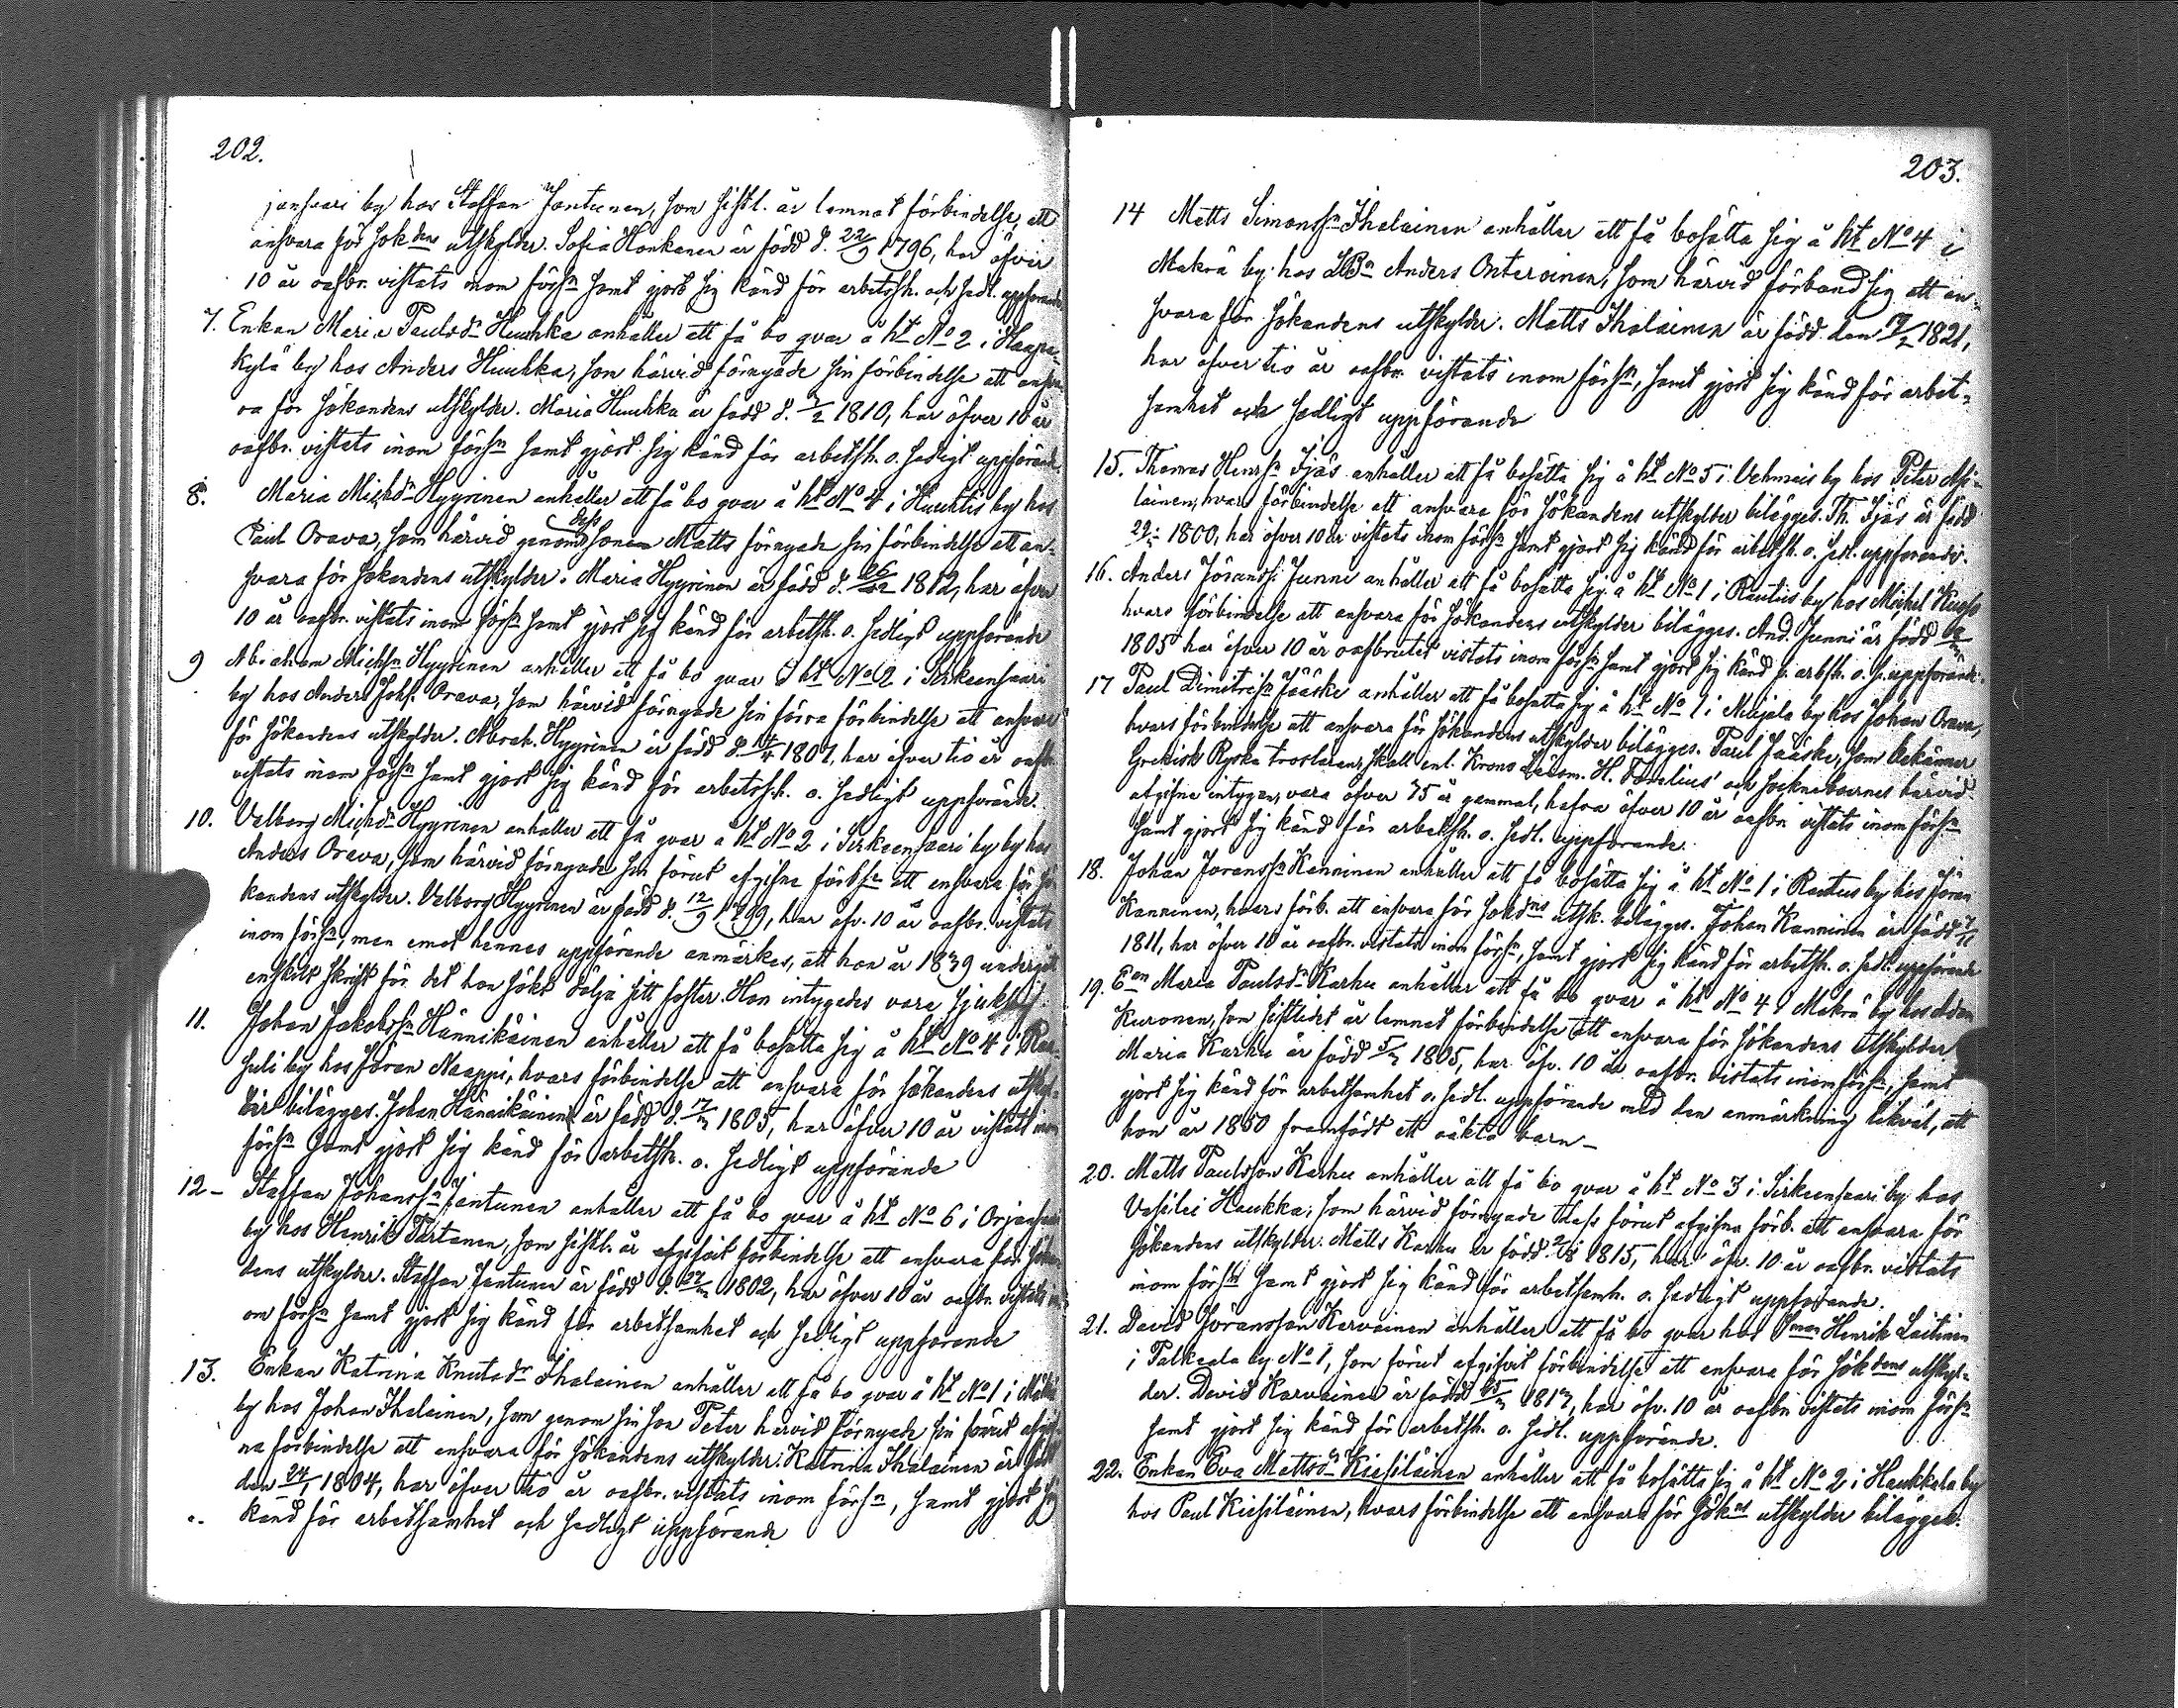 202.
jansaari by hos Staffan Jantunen, som sistl. år lemnat förbindelse att
ansvara för sökdens utskylder. Sofia Honkanen är född d. 22/9 1796, har öfver
10 år oafbr. vistats inom försn samt gjort sig känd för arbetssh. och sedl. uppförande
7. Enkan Maria Paulsdr Huuhka anhåller att få bo qvar å ht No 2 i Haapa-
kylä by hos Anders Huuhka, som härvid förnyade sin förbindelse att ansva-
ra för sökandens utskylder. Maria Huuhka är född d. 7/2 1810, har öfver 10 år
oafbr. vistats inom försn samt gjort sig känd för arbetsh. o. sedligt uppförande.
8. Maria Michdr Hyyrinen anhåller att få bo qvar å ht No 4 i Huuhtis by hos
Paul Orava, som härvid genom dess sonen Matts förnyade sin förbindelse att an-
svara för sökandens utskylder. Maria Hyyrinen är född d. 26/12 1812, har öfver
10 år oafbr. vistats inom försn samt gjort sig känd för arbetsh. o. sedligt uppförande
9 Abraham Michsn Hyyrinen anhåller att få bo qvar å ht No 2 i Sirkeensaari
by hos Anders Johs. Orava, som härvid förnyade sin förra förbindelse att ansvara
för sökandens utskylder. Abrah. Hyyrinen är född d. 14/4 1807, har öfver tio år oafbr.
vistats inom försn samt gjort sig känd för arbetssh. o. sedligt uppförande.
10. Valborg Michdr Hyyrinen anhåller att få qvar å ht No 2 i Sirkeensaari by by hos
Anders Orava, som härvid förnyade sin förut afgifna förbse att ansvara för sö-
kandens utskylder. Valborg Hyyrinen är född d. 12/9 1799, har öfv. 10 år oafbr. vistats
inom försn, men emot hennes uppförande anmärkes, att hon år 1839 undergått
enskilt skrift för det hon sökt dölja sitt foster. Hon intygades vara sjuklig.
11. Johan Jakobssn Hännikäinen anhåller att få bosätta sig å ht No 4 i Rai-
suli by hos Jöran Naappi, hvars förbindelse att ansvara för sökandens utskyl-
der bilägges. Johan Hännikäinen är född d. 17/ 1805, har öfver 10 år vistats inom
försn samt gjort sig känd för arbetsh. o. sedligt uppförande
12- Staffan Johanssn Jantunen anhåller att få bo qvar å ht No 6 i Orjansaari
by hos Henrik Tertonen, som sistl. år afgifvit förbindelse att ansvara för sökan-
dens utskylder. Staffan Jantunen är född d. 22/ 1802, har öfver 10 år oafbr. vistats in-
om försn samt gjort sig känd för arbetsamhet och sedligt uppförande
13. Enkan Katrina Knutsdr Ihalainen anhåller att få bo qvar å ht No 1 i Mäkrä
by hos Johan Ihalainen, som genom sin son Peter härvid förnyade sin förut afgif-
na förbindelse att ansvara för sökandens utskylder. Katrina Ihalainen är född
den 24/1 1804, har öfver tio år oafbr. vistats inom försn, samt gjort sig
känd för arbetsamhet och sedligt uppförande
203.
14 Matts Simonssn Ihalainen anhåller att få bosätta sig å ht No 4 i
Makrä by hos LBn Anders Onteroinen, som härvid förband sig att an-
svara för sökandens utskylder. Matts Ihalainen är född den 19/2 1821,
har öfver tio år oafbr. vistats inom försn, samt gjort sig känd för arbet-
samhet och sedligt uppförande
15. Thomas Henrsn Ijäs anhåller att få bosätta sig å ht No 5 i Vehmais by hos Peter Asi-
lainen, hvars förbindelse att ansvara för sökandens utskylder bilägges. Th. Ijäs är född
22/ 1800, har öfver 10 år vistats inom försn samt gjort sig känd för arbetsh. o. sedl. uppförande.
16. Anders Jöranssn Junni anhåller att få bosätta sig å ht No 1 i Rautus by hos Michel Kuosa
hvars förbindelse att ansvara för sökandens utskylder bilägges. And. Junni är född
1805 har öfver 10 år oafbrutet vistats inom försn samt gjort sig känd f. arbsh. o. s. uppförande.
17 Paul Dimitrisn Jääske anhåller att få bosätta sig å ht No 1 i Miljala by hos Johan Orava,
hvars förbindelse att ansvara för sökandens utskylder bilägges. Paul Jääske, som bekänner
Grekisk Ryska trosläran, skall enl. Krono Länsm. H. Forelius' och socknebornes härvid
afgifne intygen, vara öfver 75 år gammal, hafva öfver 10 år oafbr. vistats inom försn
samt gjort sig känd för arbetsh. o. sedl. uppförande.
18. Johan Joranssn Kanninen anhåller att få bosätta sig å ht No 1 i Rautus by hos Jöran
Kanninen, hvars förb. att ansvara för sökdns utsk. bilägges. Johan Kanninen är född 7/11
1811, har öfver 10 år oafbr. vistats inom försn, samt gjort sig känd för arbetsh. o. sedl. uppförande
19. Ean Maria Paulsdr Karhu anhåller att få bo qvar å ht No 4 i Makrä by hos Adam
Kuronen, som sistlidet år lemnat förbindelse att ansvara för sökandens utskylder
Maria Karhu är född 5/ 1805, har öfv. 10 år oafbr. vistats inom försn, samt
gjort sig känd för arbetsamhet o. sedl. uppförande med den anmärkning likväl, att
hon år 1850 framfödt ett oäkta barn-
20. Matts Paulsson Karhu anhåller att få bo qvar å ht No 3 i Sirkeensaari by hos
Vasilei Haukka, som härvid förnyade dess förut afgifna förb. att ansvara för
sökandens utskylder. Matts Karhu är född 2/8 1815, har öfv. 10 år oafbr. vistats
inom försn samt gjort sig känd för arbetsamh. o. sedligt uppförande.
21. David Jöransson Karvainen anhåller att få bo qvar hos Henrik Laitinen
i Palkeala by No 1, som förut afgifvit förbindelse att ansvara för sökdens utskyl-
der. David Karvainen är född 15/ 1817, har öfv. 10 år oafbr. vistats inom försn
samt gjort sig känd för arbetsh. o. sedl. uppförande.
22. Enkan Eva Mattsdr Kiesiläinen anhåller att få bosätta sig å ht No 2 i Haukkala by
hos Paul Kiesiläinen, hvars förbindelse att ansvara för sökns utskylder bilägges.